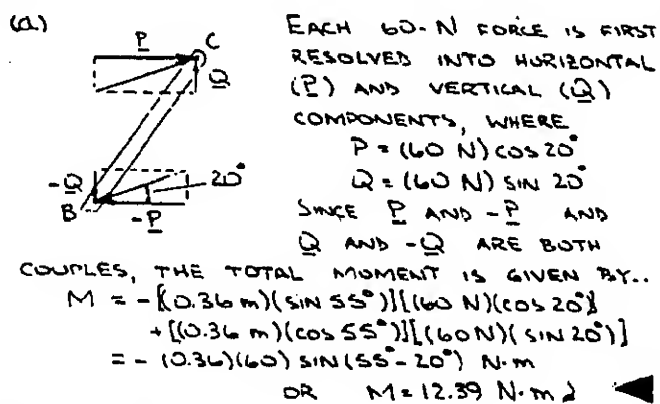 (a)
P
C
Q
-Q
20°
B
-P
EACH 60-N FORCE IS FIRST
RESOLVED INTO HORIZONTAL
(P) AND VERTICAL (Q)
COMPONENTS, WHERE
P = (60 N) cos 20°
Q = (60 N) SIN 20°
SINCE P AND -P AND
Q AND -Q ARE BOTH
COUPLES, THE TOTAL MOMENT IS GIVEN BY..
M = -[(0.36 m)(sin 55°)][(60 N)(cos 20°)]
+[(0.36 m)(cos 55°)][(60N)(SIN 20°)]
= - (0.36)(60) SIN (55° - 20°) N·m
OR M = 12.39 N·m ↻